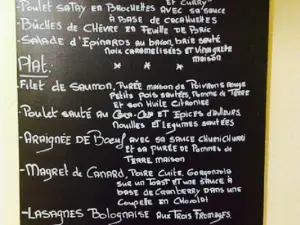 -Poulet Satay en Brochettes et Curry
avec sa sauce
à base de cacahuètes
-Bûches de Chèvre en Feuille de Bric
-Salade d'Épinards au bacon, baie santé
noix caramélisées et Vinaigrette
maison
Plat:
* * *
Filet de saumon, purée maison de Poivrons rouge
Petits pois sautés, Pomme de Terre
et son Huile Citronée
-Poulet sauté au et Epices d'ailleurs
Nouilles et légumes sautées
-Araignée de Boeuf avec sa sauce Chimichurri
et sa purée de Pommes de
Terre maison
-Magret de Canard, Poire Cuite Gorgonzola
sur un Toast et une sauce à
base de Cranberry dans une
Coupelle en Chocolat
-Lasagnes Bolognaise aux Trois Fromages